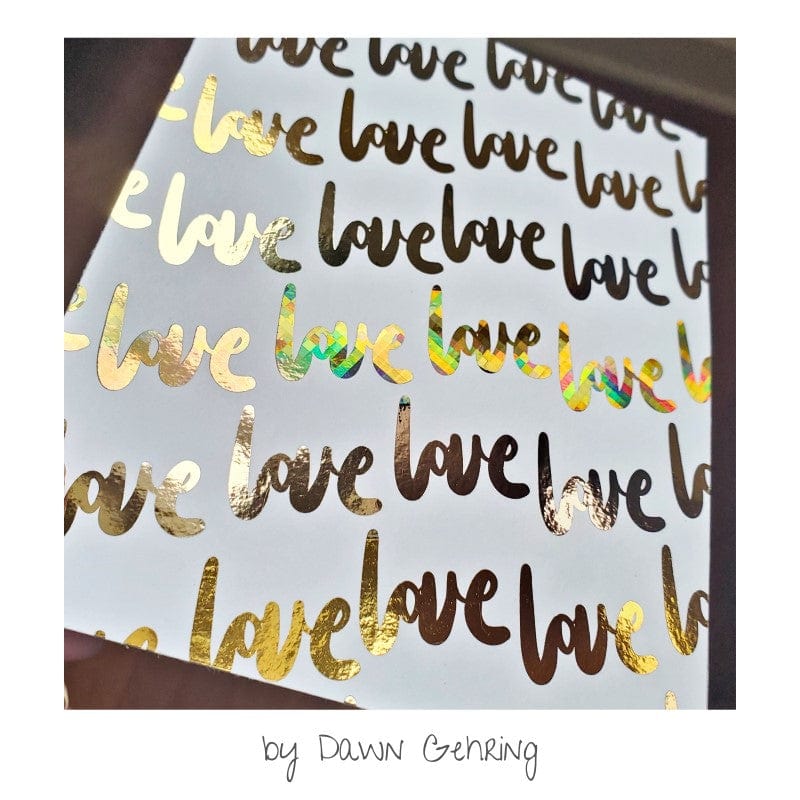 love love love love
e love love love love l
e love love love love lo
e love love love love l
love love love love lo
e love love love lo
by Dawn Gehring